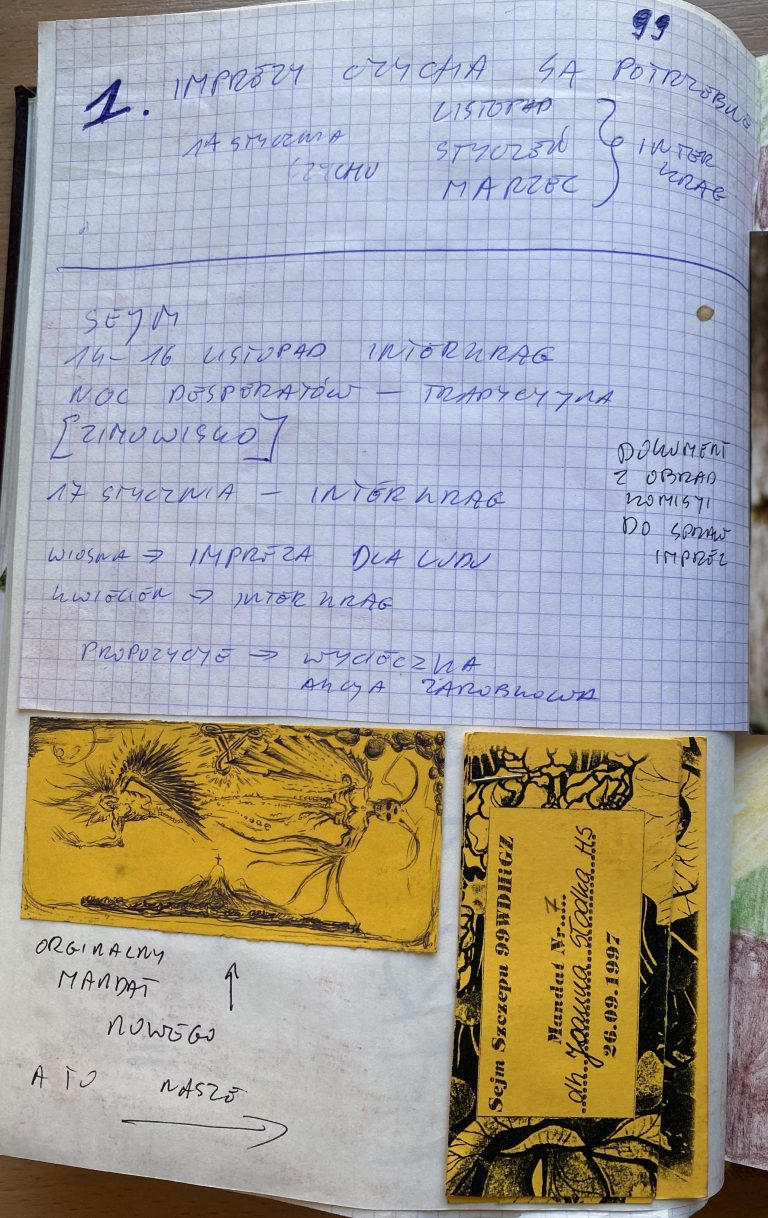 99
1. IMPREZY CZYCHA SĄ POTRZEBNE
14 STYCZNIA
CZYCHU
LISTOPAD
STYCZEŃ
MARZEC
INTER
KRĄG
SEJM
14-16 LISTOPAD INTERKRĄG
NOC DESPERATÓW - TRADYCYJNA
[ZIMOWISKO]
17 STYCZNIA - INTERKRĄG
WIOSNA → IMPREZA DLA LUDU
KWIECIEŃ → INTERKRĄG
PROPOZYCJE → WYCIECZKA
AKCJA ZAROBKOWA
DOKUMENT
Z OBRAD
KOMISJI
DO SPRAW
IMPREZ
ORGINALNY
MANDAT
NOWEGO
A TO NASZE
Sejm Szczepu 99WDHiGZ
Mandat Nr. 7
dh. Joanna Słodka HS
26.09.1997